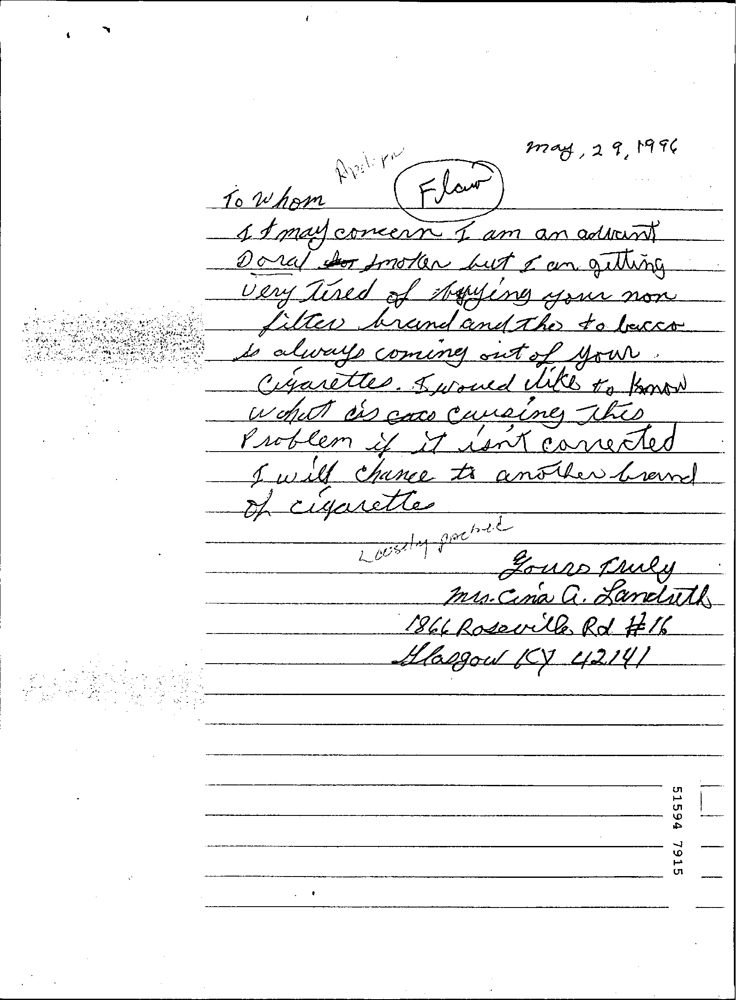 May, 29, 1996
Flaw
To Whom
It may concern I am an advant
Doral smoker but I am getting
Very Tired of buying your non
filter brand and the tobacco
is always coming out of your
Cigarettes. I would like to know
what is causing this
Problem if it isn't corrected
I will chance to another brand
of cigarettes
Loosely packed
Yours Truly
Mrs. Cina A. Landruth
1866 Roseville Rd #16
Glasgow KY 42141
51594 7915